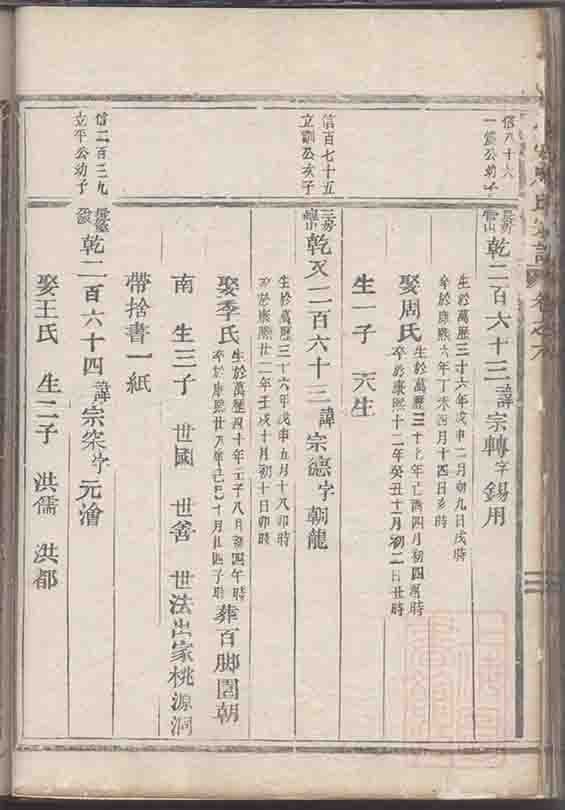 信八十六
一 公幼子
乾二百六十三諱宗轉字錫用
生於萬歷三十六年戊申二月初九日戌時
卒於康熙六年丁未四月十四日亥時
娶周氏
生於萬歷三十七年己酉四月初四 時
卒於康熙十二年癸丑十一月初二日丑時
生一子 天生
信百七十五
立訓公次子
三房
乾又二百六十三諱宗德字朝龍
生於萬歷三十六年戊申五月十八卯時
卒於康熙廿一年壬戌十月初十日卯時
娶季氏
生於萬歷四十年壬子八月初四午時
卒於康熙廿八年己巳十月廿四子時
葬百腳園朝
南 生三子 世國 世善 世法出家桃源洞
帶捨書一紙
信二百三九
立平公幼子
乾二百六十四諱宗 字元澮
娶王氏 生二子 洪儒 洪都